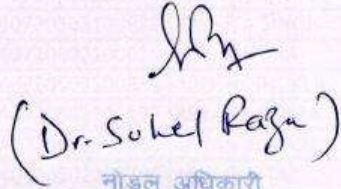 (Dr. Sohel Razu)
नोडल अधिकारी